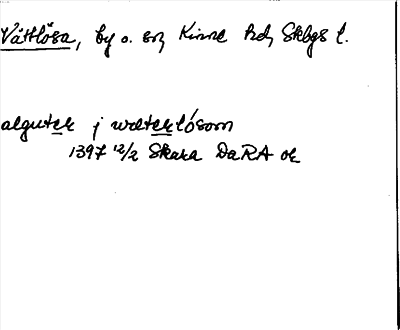 Vättlösa, by o. sn, Kinne hd, Skbgs l.
algutek j wætteklósom
1397 12/2 Skara DaRA ok